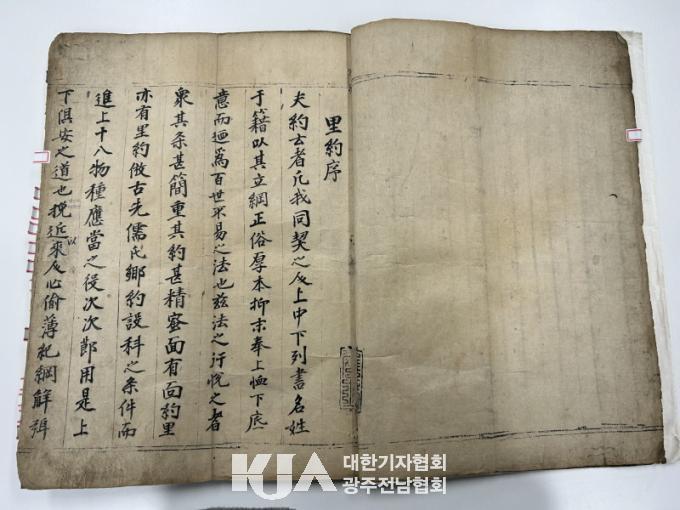 里約序
夫約云者凡我同契之民上中下列書名姓
于籍以其立綱正俗厚本抑末奉上恤下底
意而迺爲百世不易之法也玆法之行悅之者
衆其条甚簡重其約甚精密面有面約里
亦有里約倣古先儒氏鄕約設科之条件而
進上十八物種應當之役次次用是上
下俱安之道也挽近以來民心偷薄紀綱解弛
KJA 대한기자협회
광주전남협회